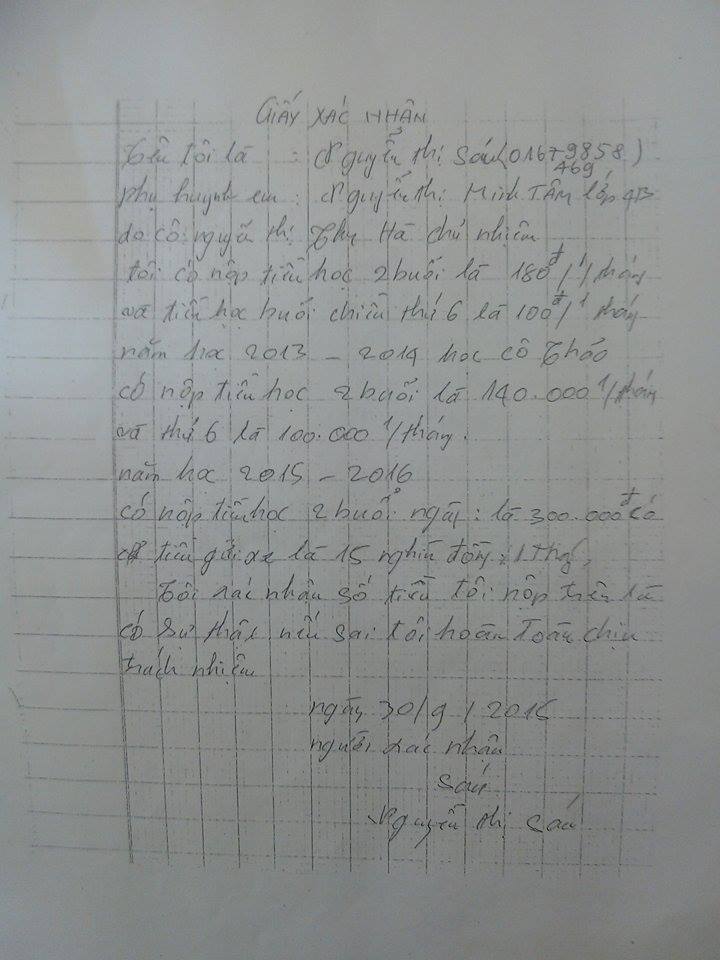 GIẤY XÁC NHẬN
Tên tôi là : Nguyễn thị Sáu (01679858
469)
phụ huynh em : Nguyễn thị Minh TÂM lớp 4B
do cô nguyễn thị Thu Hà chủ nhiệm
tôi có nộp tiền học 2 buổi là 180đ/1/tháng
và tiền học buổi chiều thứ 6 là 100đ/1 tháng
năm học 2013 - 2014 học cô Thảo
có nộp tiền học 2 buổi là 140.000 1/tháng
và thứ 6 là 100.000 1/tháng.
năm học 2015 - 2016
có nộp tiền học 2 buổi ngày : là 300.000đ có
tiền gửi xe là 15 nghìn đồng 1 tháng,
Tôi xác nhận số tiền tôi nộp trên là
có sự thật nếu sai tôi hoàn toàn chịu
trách nhiệm
ngày 30/9/2015
người xác nhận
Sáu
Nguyễn thị Sáu